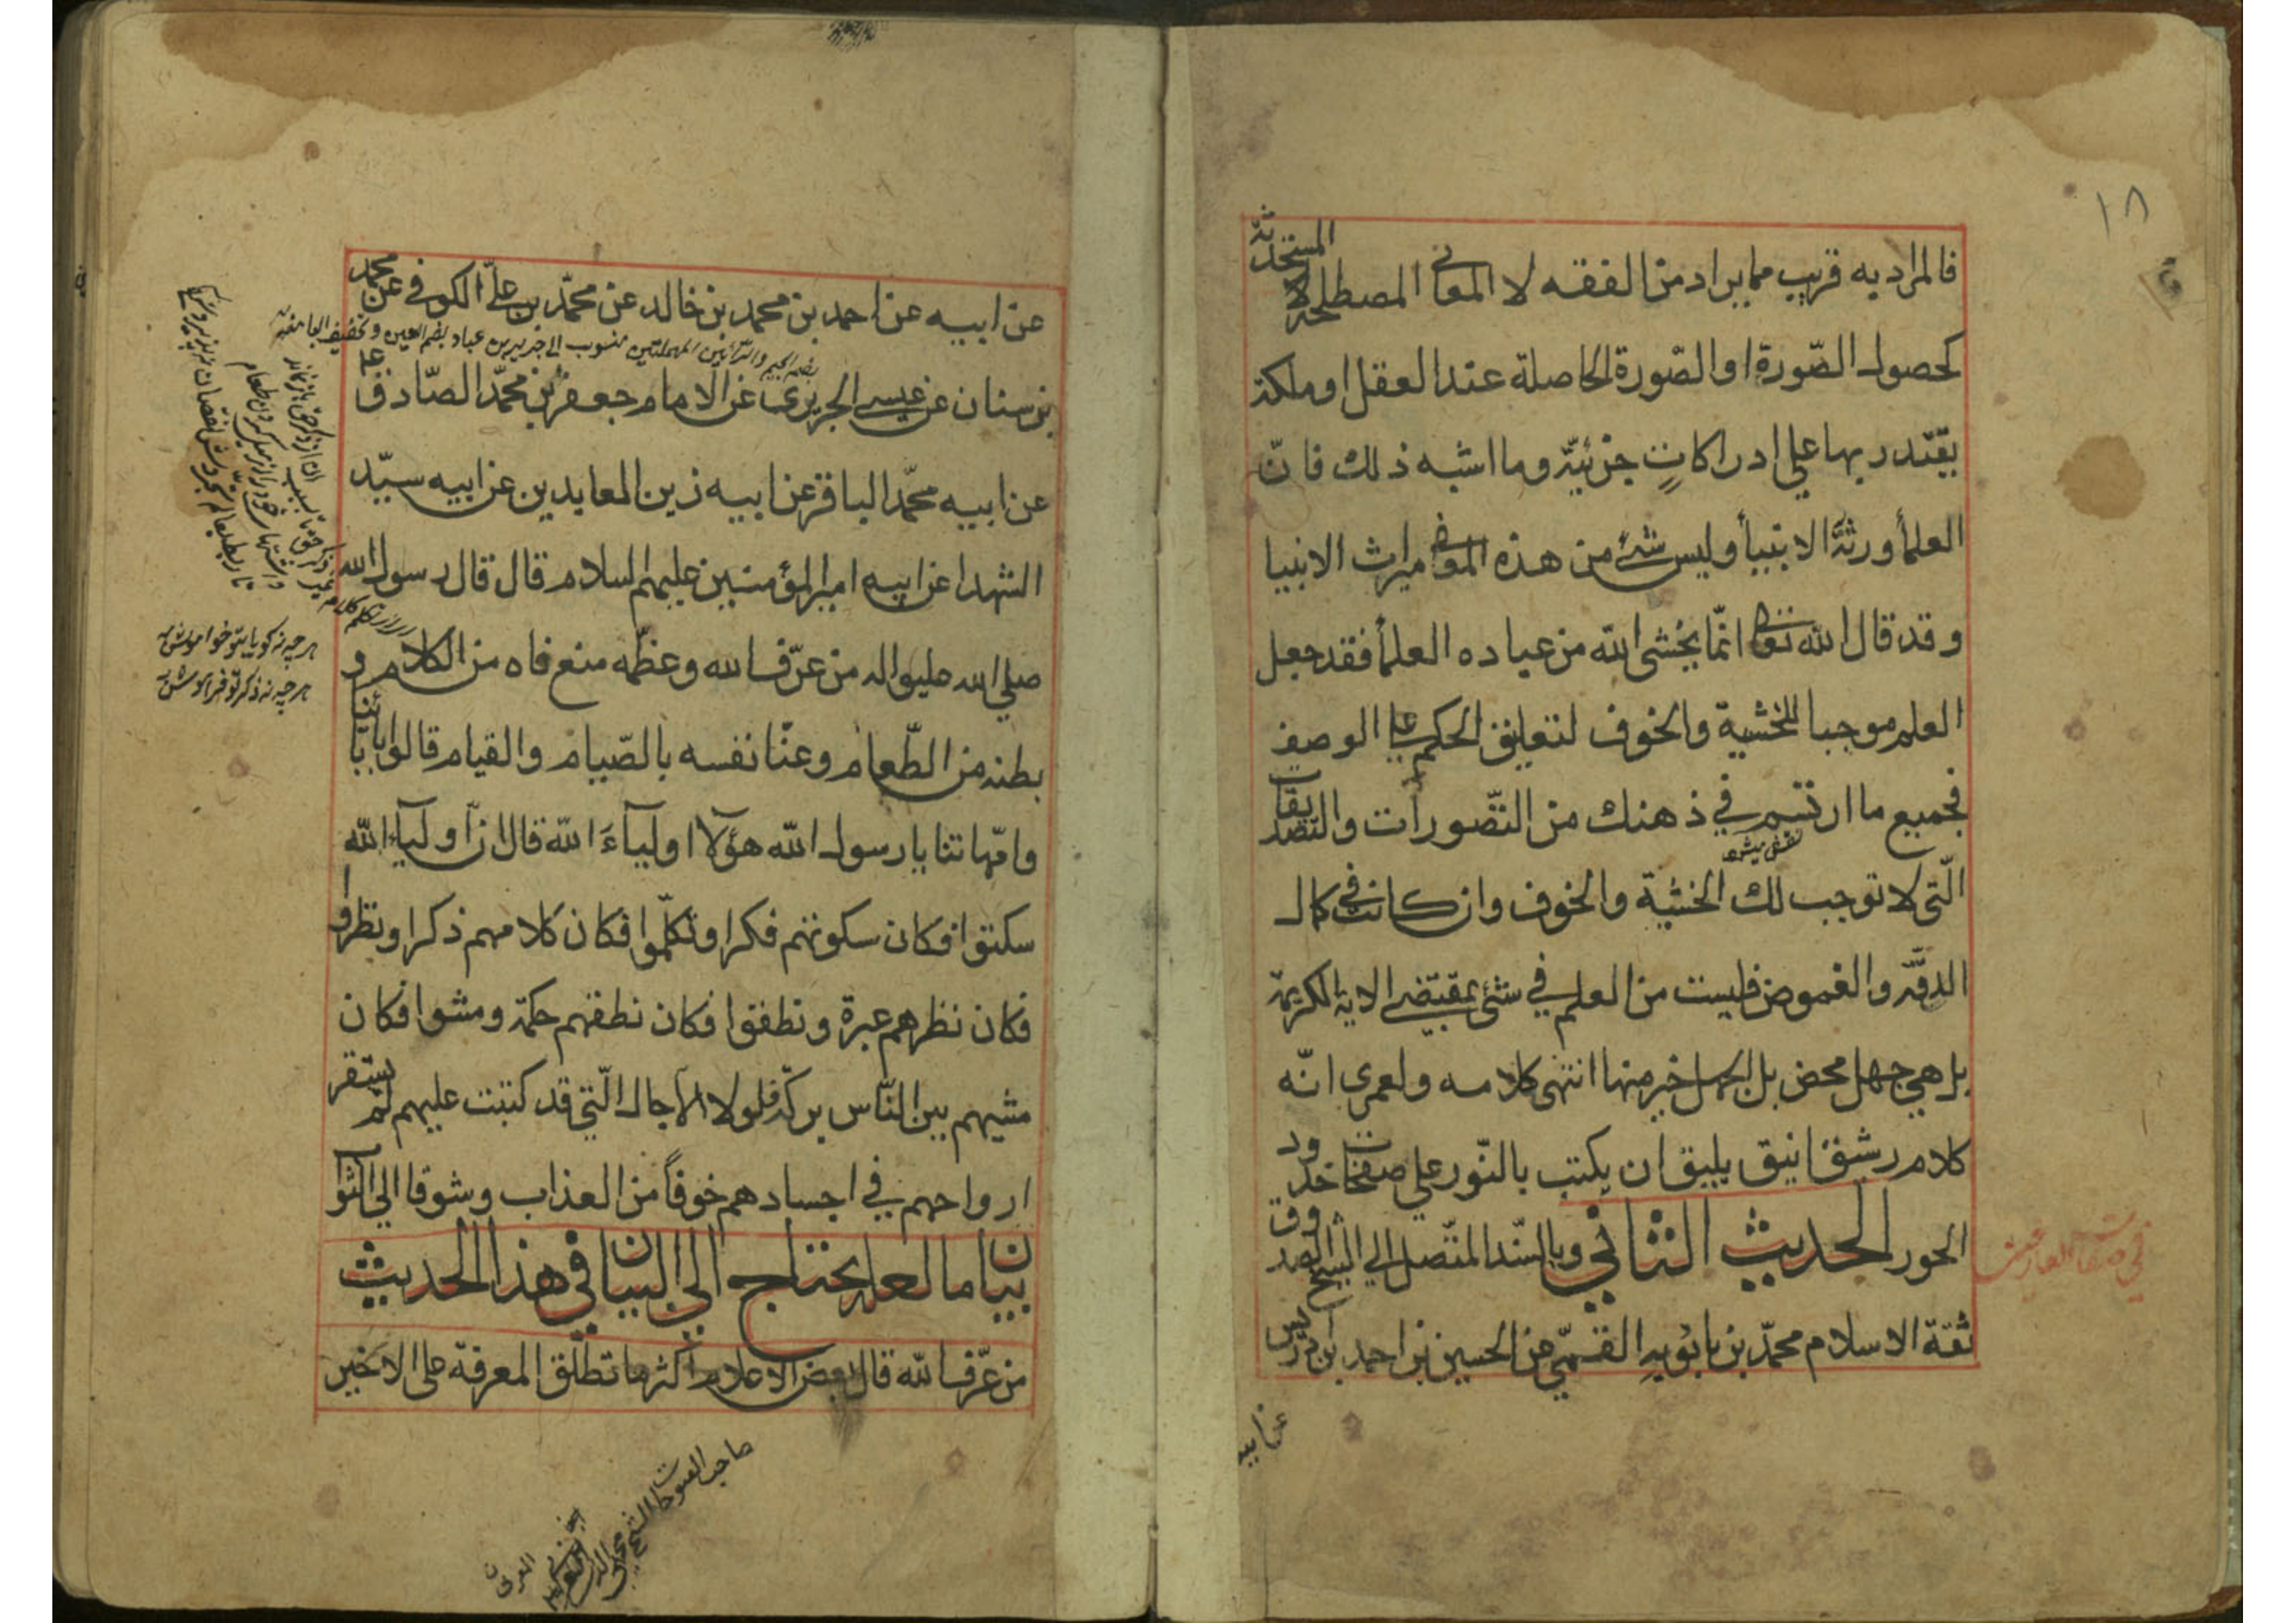 ١٨
فالمراد به قريب مما يراد من الفقه لا المعانى المصطلحة المستحدثة
كحصول الصّورة او الصّورة الحاصلة عند العقل او ملكة
يقتدر بها علي ادراكاتٍ جزئيّة وما اشبه ذلك فانّ
العلمأ ورثةُ الانبيأ وليس شئ من هذه المعانى ميراث الانبيا
وقد قال الله تعالى انّما يخشى الله من عباده العلمأ فقد جعل
العلم موجبا للخشية والخوف لتعليق الحكم على الوصف
فجميع ما ارتسم في ذهنك من التّصورات والتّصديقات
الّتى لا توجب لك الخشية والخوف وان كانت في كمال
الدقّة والغموض فليست من العلم في شئ بمقتضى الاية الكريمة
بل هي جهل محض بل الجهل خير منها انتهى كلامه ولعمرى انّه
كلام رشيق انيق يليق ان يكتب بالنّور علي صفحات خدود
الحور الحديث الثانى وبالسّند المتّصل الي الشيخ الصدوق
في صفات العارفين
ثقة الاسلام محمّد بن بابويه القمّي عن الحسين بن احمد بن ادريس
عن ابيه
عن ابيه عن احمد بن محمد بن خالد عن محمّد بن علىّ الكوفى عن محمد
بضم الجيم والرائين المهملتين منسوب الى جرير بن عباد بضم العين وتخفيف البا
بن سنان عن عيسى الجريرى عن الامام جعفر بن محمّد الصّادق ع
عن ابيه محمّد الباقر عن ابيه زين العابدين عن ابيه سيّد
الشهدا عن ابيه امير المؤمنين عليهم السلام قال قال رسول الله
صلي الله عليه واله من عرّف الله وعظّمه منع فاه من الكلام و
بطنه من الطّعام وعنّا نفسه بالصّيام والقيام قالوا بابائنا
وامّهاتنا يا رسول الله هؤلآ اوليآءَ الله قال انّ اوليآء الله
سكتوا فكان سكوتهم فكرا وتكلّموا فكان كلامهم ذكرا ونظروا
فكان نظرهم عبرة ونطقوا فكان نطقهم حكمة ومشوا فكان
مشيهم بين النّاس بركة فلولا الآجال الّتي قد كتبت عليهم لم تستقر
ارواحهم في اجسادهم خوفاً من العذاب وشوقا الي الثواب
بيان ما لعله يحتاج الي البيان فى هذا الحديث
من عرّف الله قال بعض الاعلام اكثر ما تطلّق المعرفة على الاخير
هر چه نه كويا بتو خواموش به
هر چه نه ذكر تو فراموش به